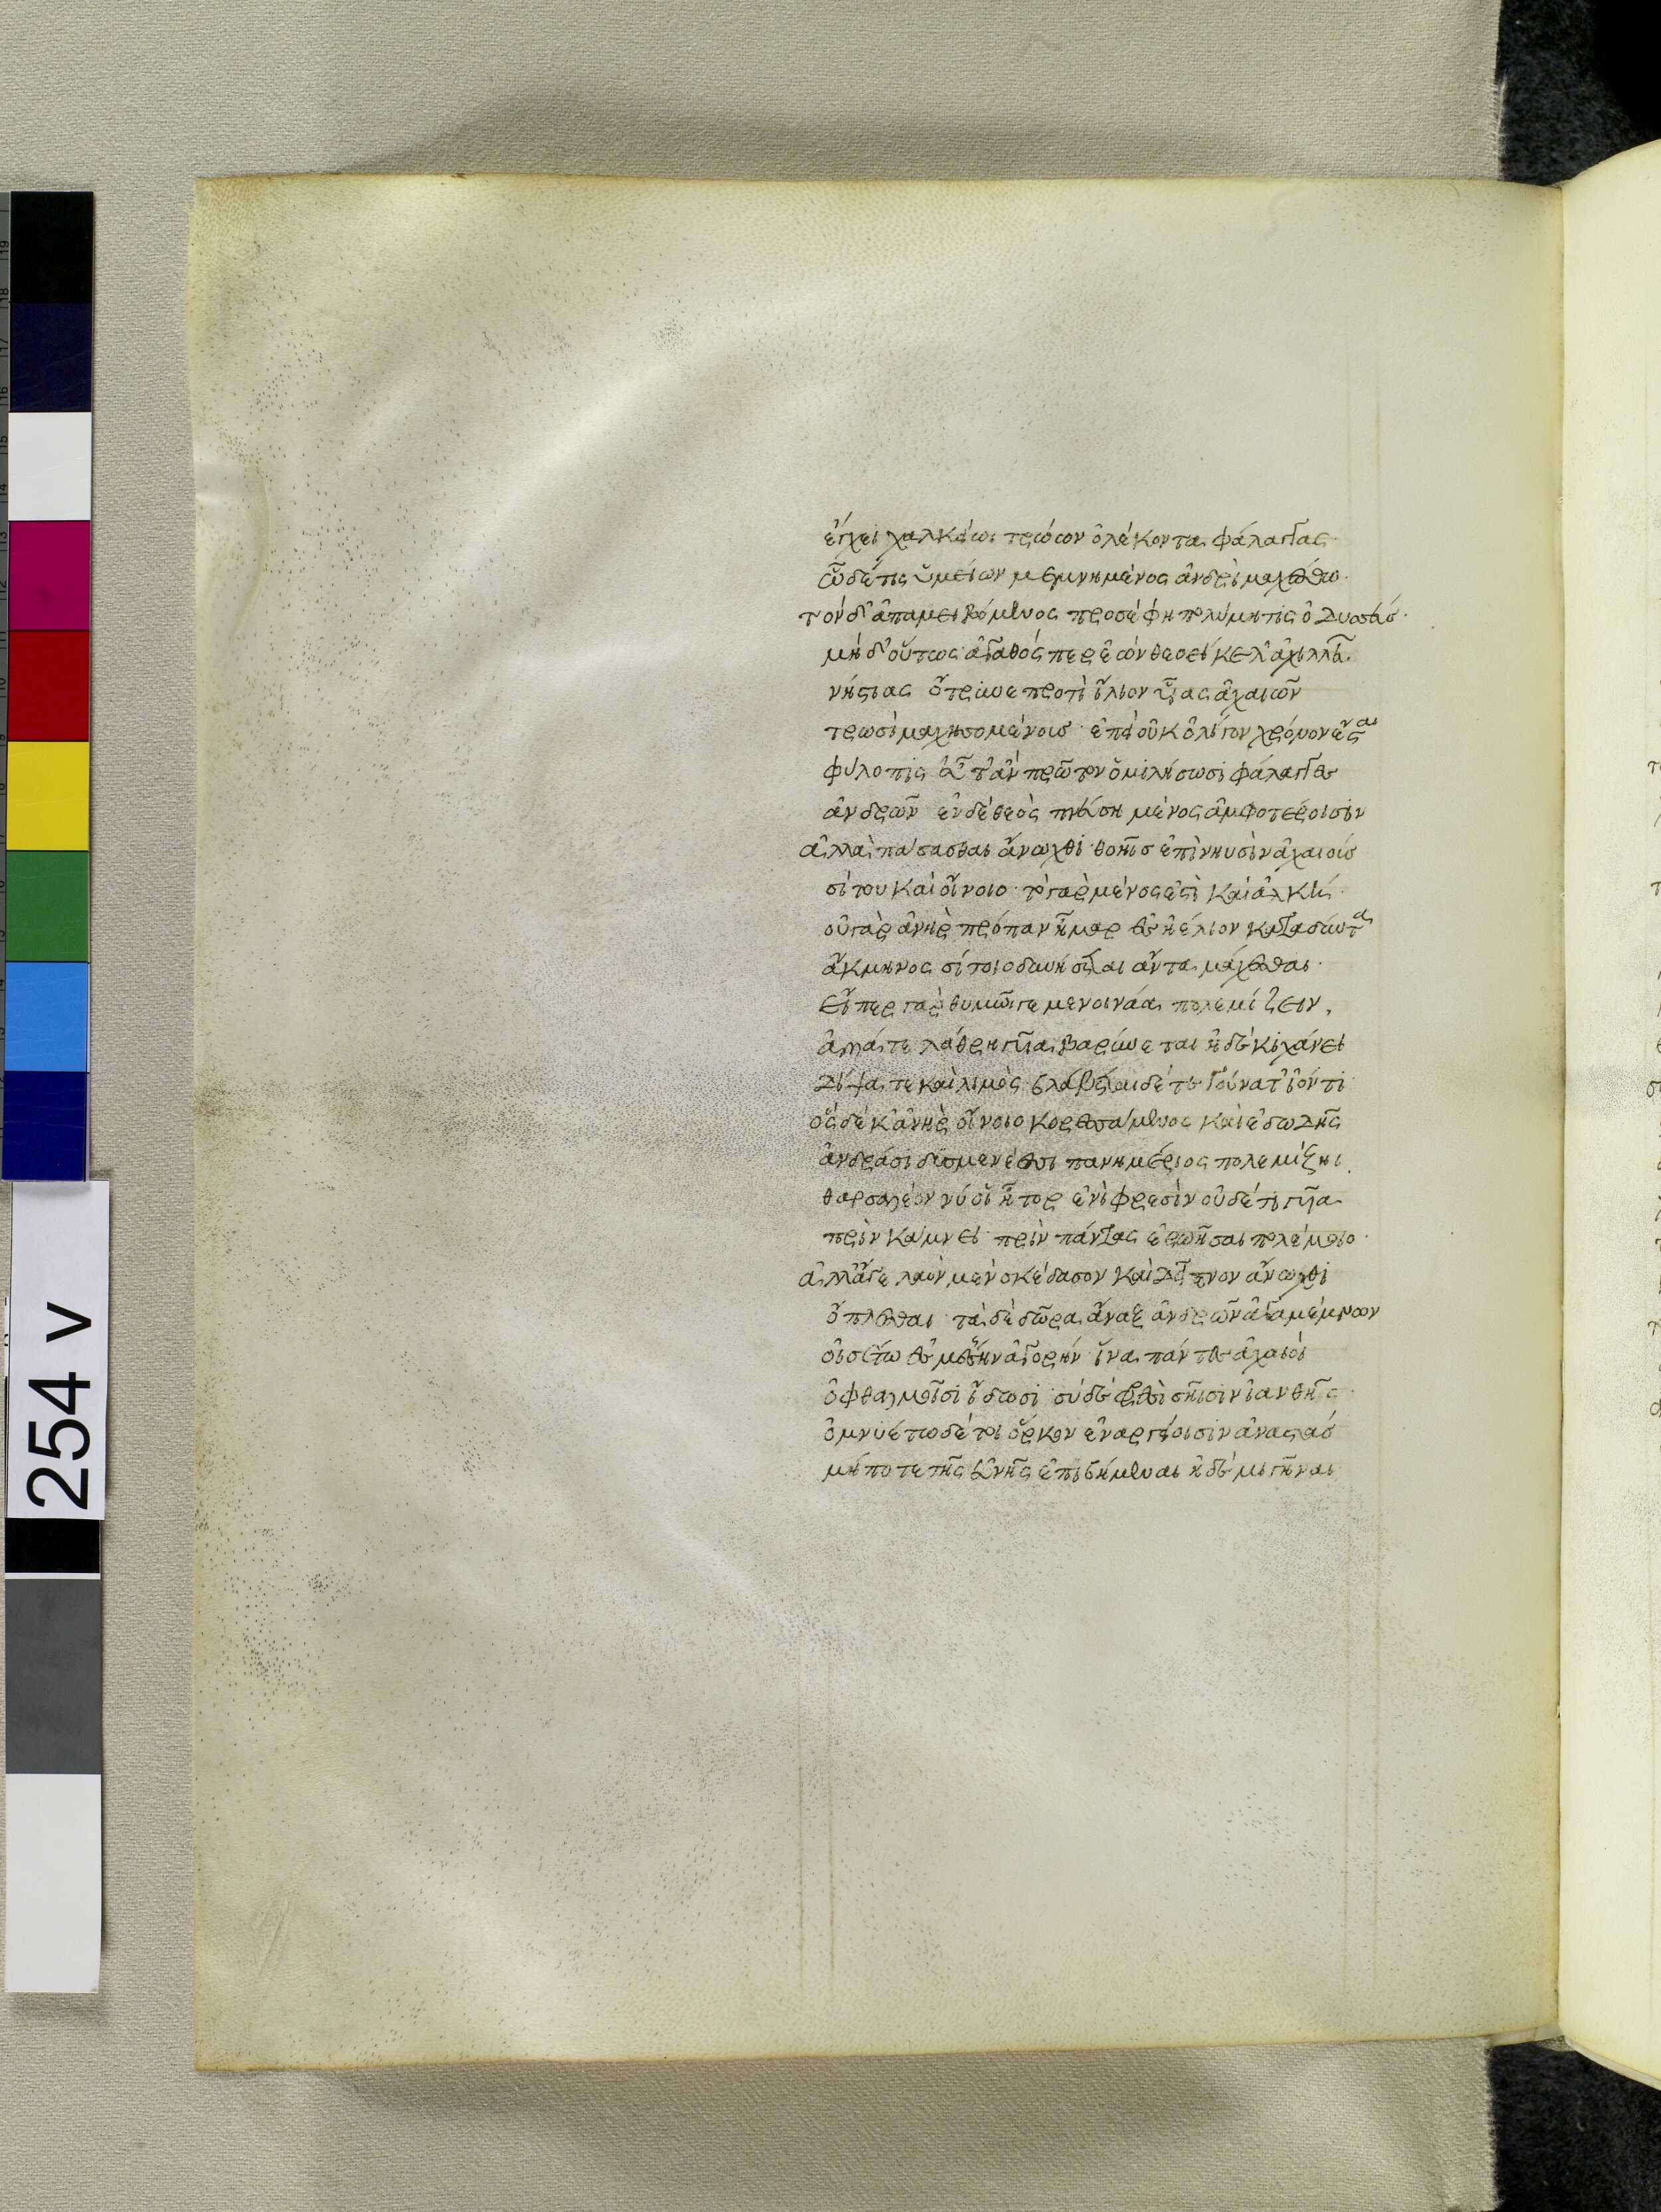 ἔγχει χαλκείωι τρώων ὀλέκοντα φάλαγγας·
ὧδέ τις ὑμείων μεμνημένος ἀνδρὶ μαχέσθω·
τὸν δ' ἀπαμειβόμενος προσέφη πολύμητις ὀδυσσεύς·
μὴ δ' οὕτως ἀγαθός περ ἐὼν θεοείκελ' ἀχιλλεῦ·
νήστιας ὄτρυνε προτὶ ἴλιον υἷας ἀχαιῶν
τρωσὶ μαχησομένους· ἐπεὶ οὐκ ὀλίγον χρόνον ἔσται
φύλοπις εὖτ' ἂν πρῶτον ὁμιλήσωσι φάλαγγες
ἀνδρῶν ἐν δὲ θεὸς πνεύσηι μένος ἀμφοτέροισιν
ἀλλὰ πάσασθαι ἄνωχθι θοῆις ἐπὶ νηυσὶν ἀχαιοὺς
σίτου καὶ οἴνοιο· τὸ γὰρ μένος ἐστὶ καὶ ἀλκή·
οὐ γὰρ ἀνὴρ πρόπαν ἦμαρ ἐς ἠέλιον καταδύντα
ἄκμηνος σίτοιο δυνήσεται ἄντα μάχεσθαι·
εἴπερ γὰρ θυμῶι γε μενοινάαι πολεμίζειν,
ἀλλά τε λάθρηι γυῖα βαρύνεται ἠδὲ κιχάνει
δίψά τε καὶ λιμός· βλάβεται δέ τε γούνατ' ἰόντι
ὃς δέ κ' ἀνὴρ οἴνοιο κορεσσάμενος καὶ ἐδωδῆς
ἀνδράσι δυσμενέεσσι πανημέριος πολεμίζηι
θαρσαλέον νύ οἱ ἦτορ ἐνὶ φρεσὶν οὐδέ τι γυῖα
πρὶν κάμνει πρὶν πάντας ἐρωῆσαι πολέμοιο·
ἀλλ' ἄγε λαὸν μὲν σκέδασον καὶ δεῖπνον ἄνωχθι
ὅπλεσθαι· τὰ δὲ δῶρα ἄναξ ἀνδρῶν ἀγαμέμνων
οἰσέτω ἐς μέσσην ἀγορήν ἵνα πάντες ἀχαιοὶ
ὀφθαλμοῖσι ἴδωσι σὺ δὲ φρεσὶ σῆισιν ἰανθῆις·
ὀμνυέτω δέ τοι ὅρκον ἐν ἀργείοισιν ἀναστάς
μήποτε τῆς εὐνῆς ἐπιβήμεναι ἠδὲ μιγῆναι
254 v